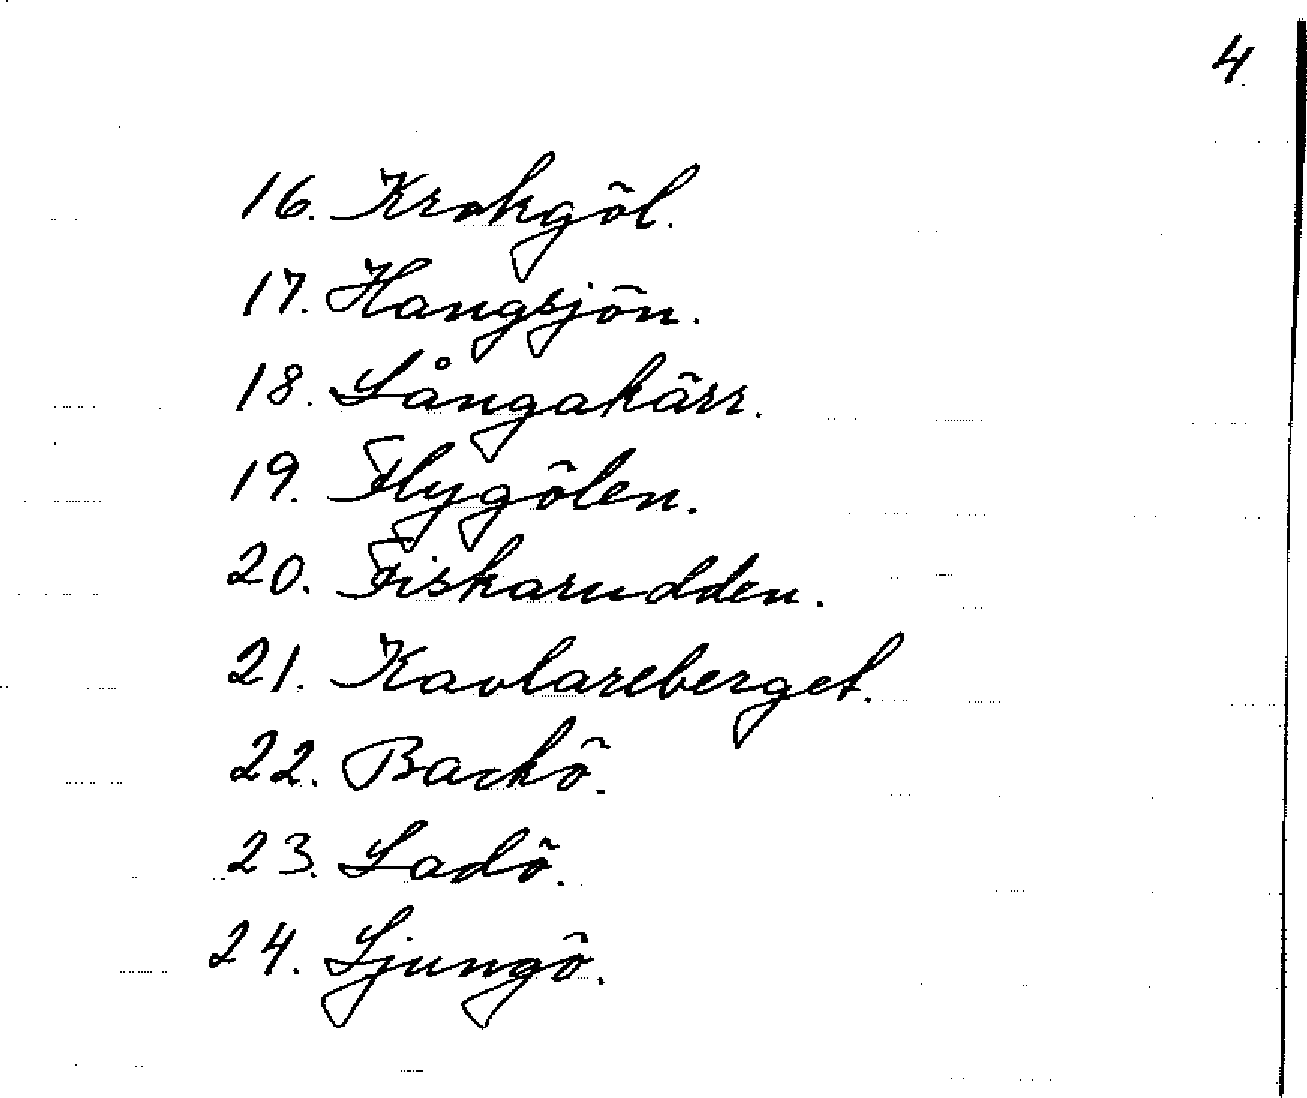 4.
16. Krokgöl.
17. Hangsjön.
18. Långakärr.
19. Flygölen.
20. Fiskarudden.
21. Kavlareberget.
22. Backö.
23. Ladö.
24. Ljungö.